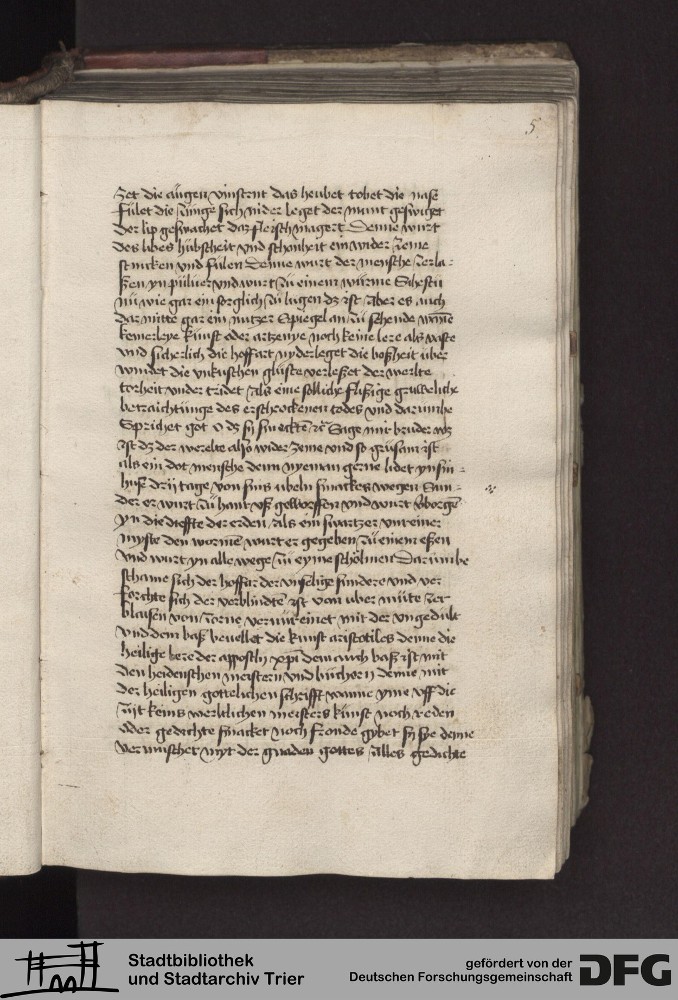 5
zet die augen vinstent das heubet tobet die nase
fulet die zunge sich nider leget der munt geswiget
der lip geswachet daz fleisch magert Denne wurt
des libes hubscheit vnd schonheit ein wider zeme
stincken vnd fulen Denne wurt der mensche zerla-
ßen yn puluer vnd wurt zu einem wurme
nu wie gar ein sorglich zu lugen dz ist Aber es auch
dar mitte gar ein nutzer Spiegel an zu sehende wane
keinerleye kunst oder artzenye noch keine lere als vaste
vnd sicherlich die hoffart nyderleget die boßheit uber
windet die vnkuschen gluste verleßet der werlte
torheit vnder tridet Als eine flißige gruweliche
betrachtunge des erschrockenen todes vnd darumbe
Sprichet got O dz sy smeckte Sage mir bruder wz
ist dz der werelte also wider zeme vnd so grusam ist
als ein dot mensche denn nyeman gerne lidet yn sin-
huß drij tage von sins ubeln smackes wegen Sun-
der er wurt zu hant vß geworffen vnd wurt vborge
yn die dieffte der erden Als ein swartzer vnreiner
myste den worme wurt er gegeben zu einem eßen
vnd wurt yn alle wege zu eyme schölmen Darumbe
schame sich der hoffar der vnselige sundere vnd ver
forchte sich der verblindte ist von uber mute zer
blasen von zorne verunreinet mit der vngedult
vnd dem baß beuellet die kunst aristotiles denne die
heilige lere der appostln xpi dem auch baß ist mit
den heidenschen meistern vnd buchern denne mit
der heiligen gottelichen schrifft wanne yme vff die
zijt keins werltlichen meisters kunst noch reden
oder gedichte smacket noch fronde gybet sy sye denne
vermischet myt der gnaden gottes Alles gedichte
Stadtbibliothek
und Stadtarchiv Trier
gefördert von der
Deutschen Forschungsgemeinschaft
DFG